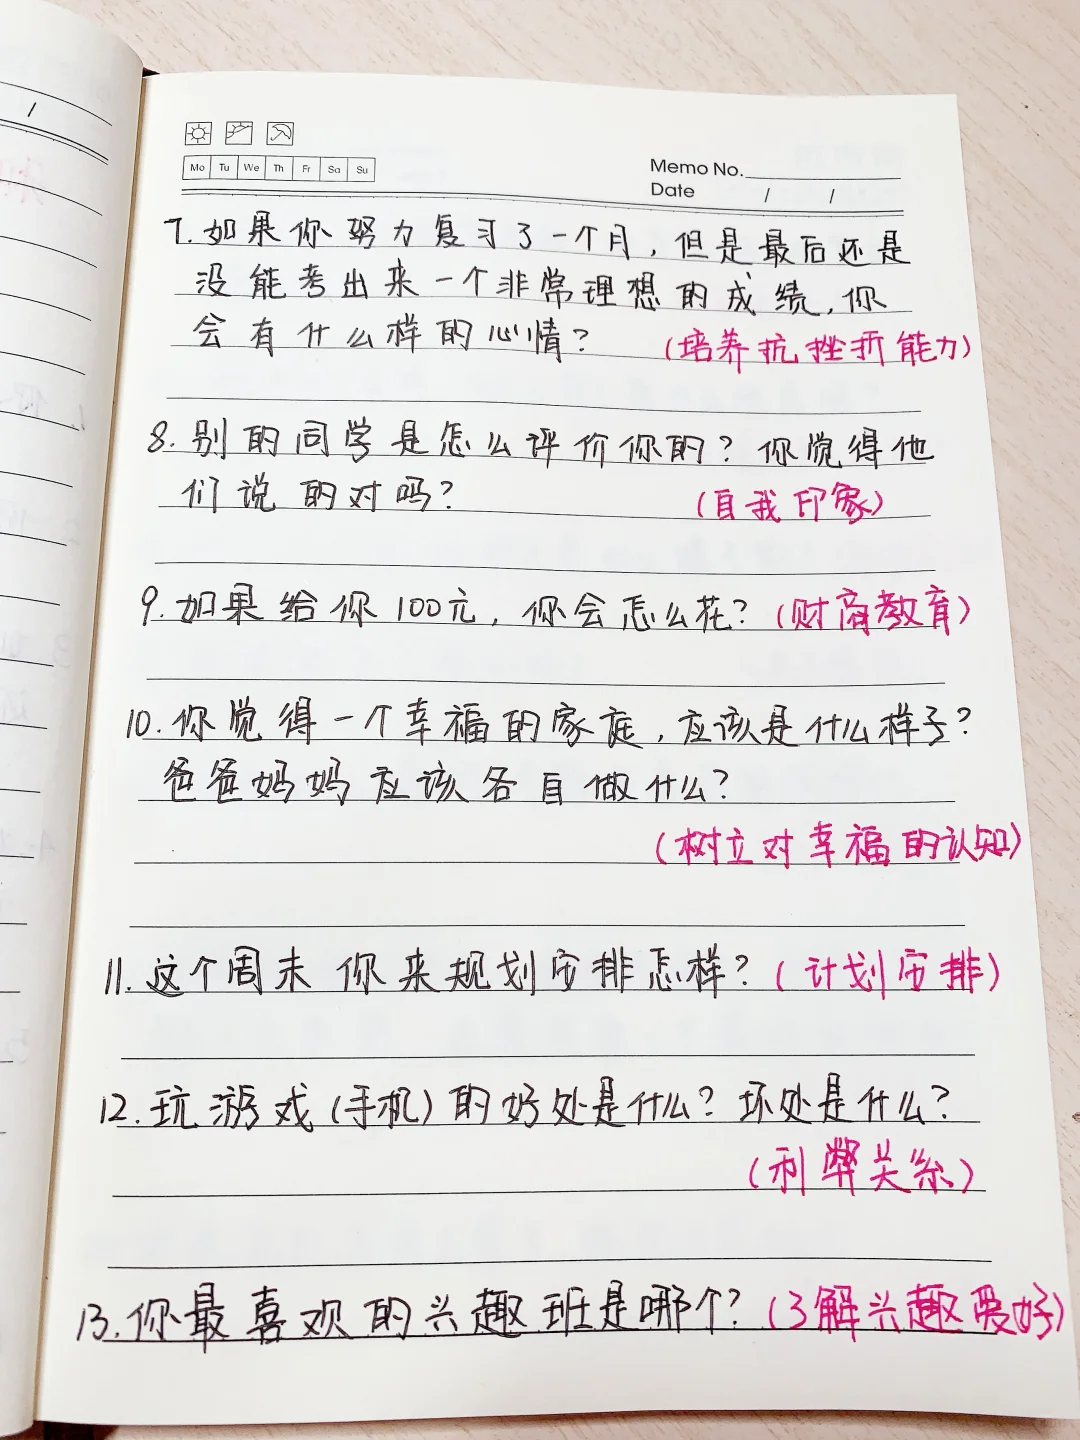 /
Mo Tu We Th Fr Sa Su
Memo No.
Date / /
7.如果你努力复习了一个月,但是最后还是
没能考出来一个非常理想的成绩,你
会有什么样的心情? (培养抗挫折能力)
8.别的同学是怎么评价你的?你觉得他
们说的对吗? (自我印象)
9.如果给你100元,你会怎么花?(财商教育)
10.你觉得一个幸福的家庭,应该是什么样子?
爸爸妈妈应该各自做什么?
(树立对幸福的认知)
11.这个周末你来规划安排怎样?(计划安排)
12.玩游戏(手机)的好处是什么?坏处是什么?
(利弊关系)
13.你最喜欢的兴趣班是哪个?(了解兴趣爱好)